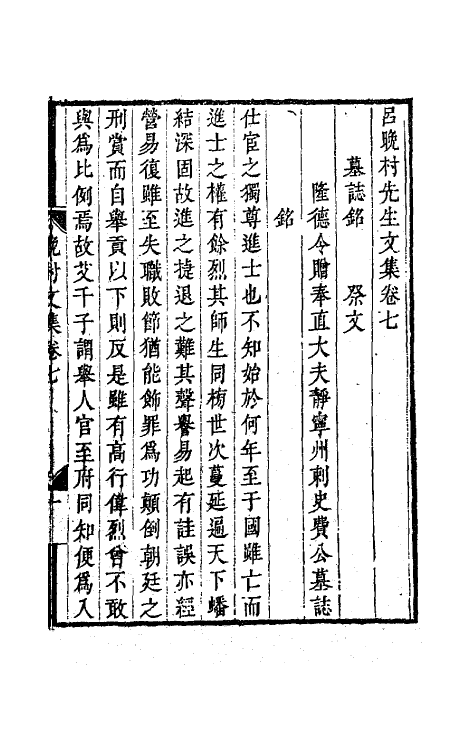 呂晚村先生文集卷七
墓誌銘　祭文
隆德令贈奉直大夫靜寧州刺史費公墓誌
銘
仕宦之獨尊進士也不知始於何年至于國雖亡而
進士之權有餘烈其師生同榜世次蔓延遍天下蟠
結深固故進之捷退之難其聲譽易起有詿誤亦經
營易復雖至失職敗節猶能飾罪爲功顛倒朝廷之
刑賞而自舉貢以下則反是雖有高行偉烈曾不敢
與爲比例焉故艾千子謂舉人官至府同知便爲入
晚村文集卷七
一